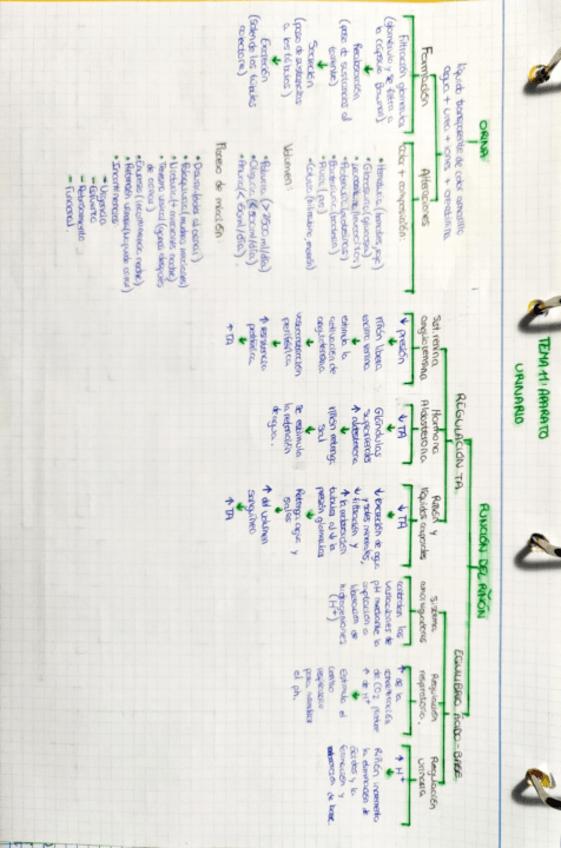 TEMA 11: APARATO
URINARIO
ORINA
líquido transparente de color amarillo
agua + urea + iones + creatinina
Formación
Filtración glomerular
(glomérulo y se filtra a
la cápsula Bowman)
Reabsorción
(paso de sustancias al
torrente)
Secreción
(paso de sustancias
a los túbulos)
Excreción
(salen de los túbulos
colectores)
Alteraciones
Color + composición:
• Glucosuria (glucosa)
• Leucocituria (leucocitos)
• Proteinuria (proteínas)
• Bacteriuria (bacteria)
• Piuria (pus)
Volumen:
• Poliuria (> 2500 ml/día)
• Oliguria (< 500 ml/día)
• Anuria (< 50ml/día).
Proceso de micción:
• Nicturia (↑ micciones noche)
• Tenesmo vesical (ganas después
de orinar)
• Enuresis (incontinencia noche)
• Retención urinaria (no puede orinar)
• Incontinencias
- Urgencia
- Esfuerzo
- Rebosamiento
- Funcional.
FUNCIÓN DEL RIÑÓN
REGULACIÓN TA
Sist. renina
angiotensina
↓ presión
riñón libera
renina
estimula la
activación de
angiotensina
vasoconstricción
periférica
↑ resistencia
periférica
↑ TA
Hormona
Aldosterona
↓ TA
Glándulas
suprarrenales
↑ aldosterona
riñón retenga
sal
Se estimula
la retención
de agua.
Riñón y
líquidos corporales
↓ TA
↓ excreción de agua
y sales minerales,
↓ filtración y
↑ la reabsorción
tubular al ↓ la
presión glomerular
Retenga agua y
sales
↑ del volumen
sanguíneo
↑ TA
EQUILIBRIO ÁCIDO-BASE
Sistema
amortiguadores
controlan las
variaciones de
pH mediante la
captación o
liberación de
hidrogeniones
(H⁺)
Regulación
respiratoria.
↑ de la
concentración
de CO₂ produce
↑ de H⁺
Estimula el
centro
respiratorio
para
el ph.
Regulación
urinaria
↑ H⁺
Riñón incrementa
la eliminación de
ácidos y la
formación y
reabsorción de base.